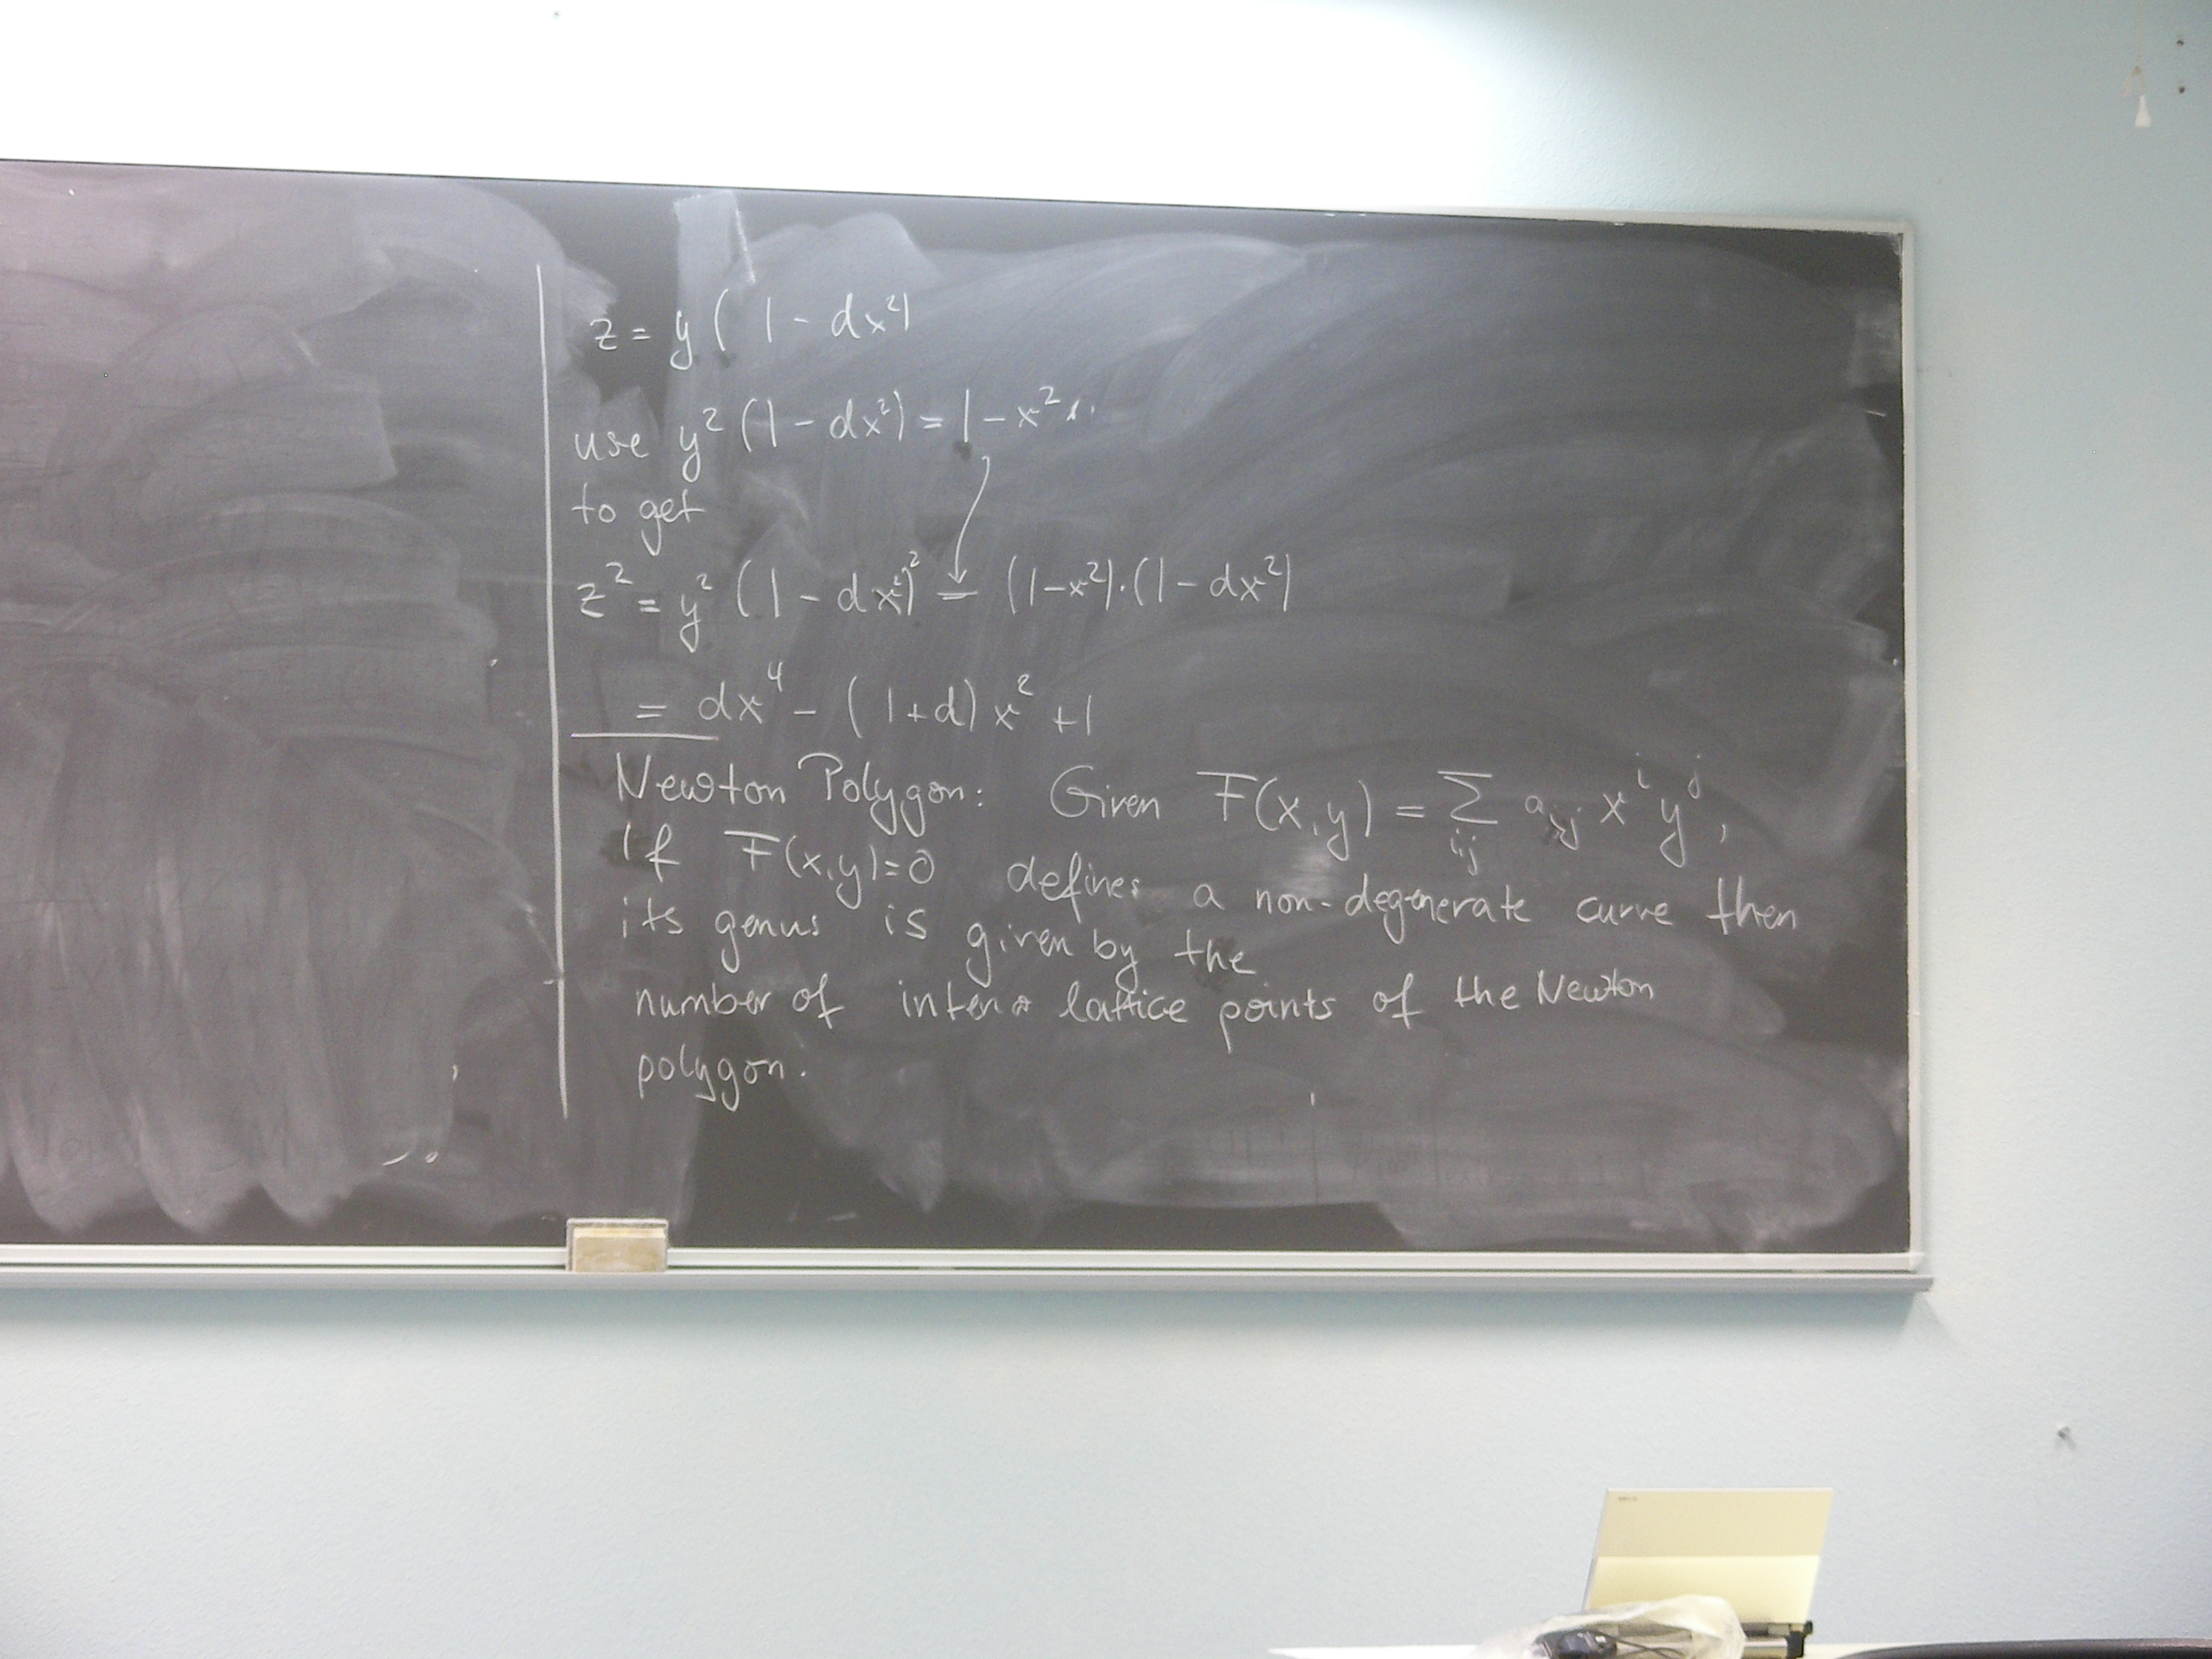 z = y ( 1 - dx²)
use y² (1 - dx²) = 1 - x²
to get
z² = y² (1 - dx²)² = (1-x²)·(1 - dx²)
= dx⁴ - (1+d) x² + 1
Newton Polygon: Given F(x,y) = Σ_{i,j} a_{ij} x^i y^j,
If F(x,y)=0 defines a non-degenerate curve then
its genus is given by the
number of interior lattice points of the Newton
polygon.